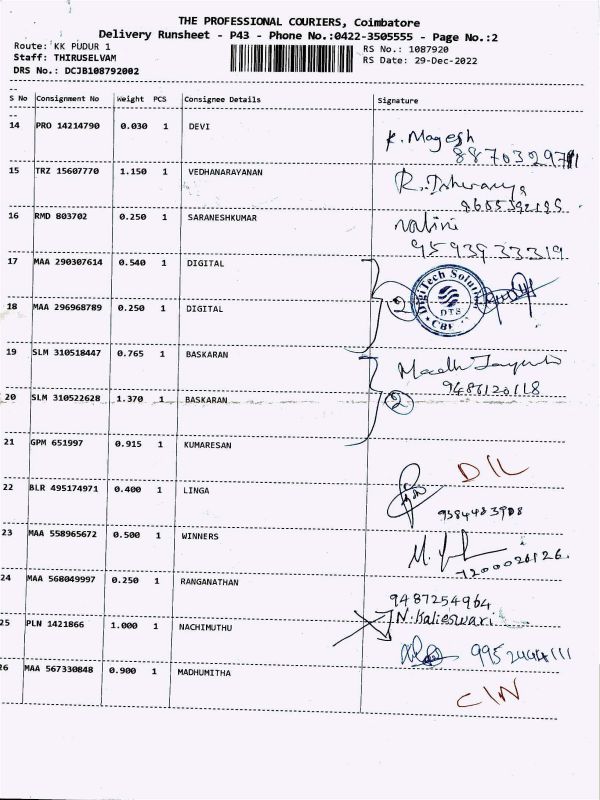 THE PROFESSIONAL COURIERS, Coimbatore
Delivery Runsheet - P43 - Phone No.:0422-3505555 - Page No.:2
Route: KK PUDUR 1 RS No.: 1087920
Staff: THIRUSELVAM RS Date: 29-Dec-2022
DRS No.: DCJB108792002
S No Consignment No Weight PCS Consignee Details Signature
14 PRO 14214790 0.030 1 DEVI K. Magesh
15 TRZ 15607770 1.150 1 VEDHANARAYANAN
16 RMD 803702 0.250 1 SARANESHKUMAR nalini
9593933319
17 MAA 290307614 0.540 1 DIGITAL
DigiTech Solut
DTS
CBE
2
18 MAA 296968789 0.250 1 DIGITAL
19 SLM 310518447 0.765 1 BASKARAN
9486120118
20 SLM 310522628 1.370 1 BASKARAN 2
21 GPM 651997 0.915 1 KUMARESAN D/L
22 BLR 495174971 0.400 1 LINGA
9384483908
23 MAA 558965672 0.500 1 WINNERS
7200026126.
24 MAA 568049997 0.250 1 RANGANATHAN 9487254964
N. Kalieswari
25 PLN 1421866 1.000 1 NACHIMUTHU
9952444111
26 MAA 567330848 0.900 1 MADHUMITHA C/N